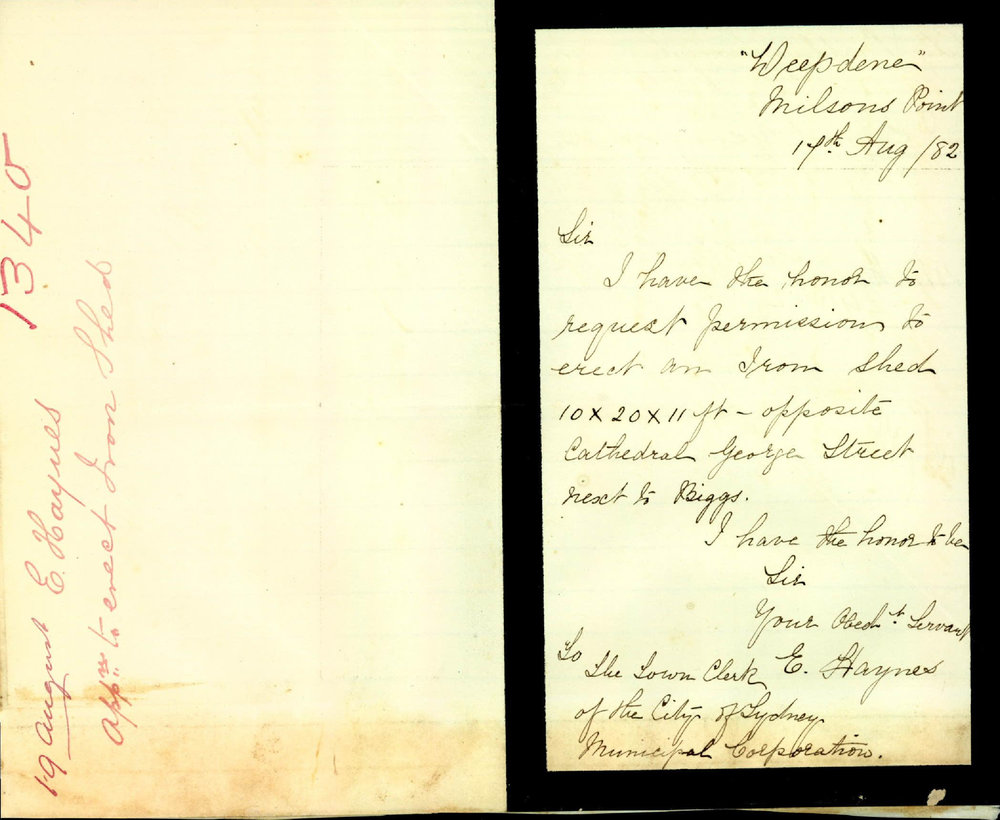 1340
19 August E. Haynes
Appn. to erect Iron Shed
"Weepdene"
Milsons Point
17th. Aug /82
Sir
I have the honor to
request permission to
erect an Iron Shed
10 x 20 x 11 ft - opposite
Cathedral George Street
next to Biggs.
I have the honor to be
Sir
Your Obedt. Servant
E. Haynes
To
The Town Clerk
of the City of Sydney
Municipal Corporation.